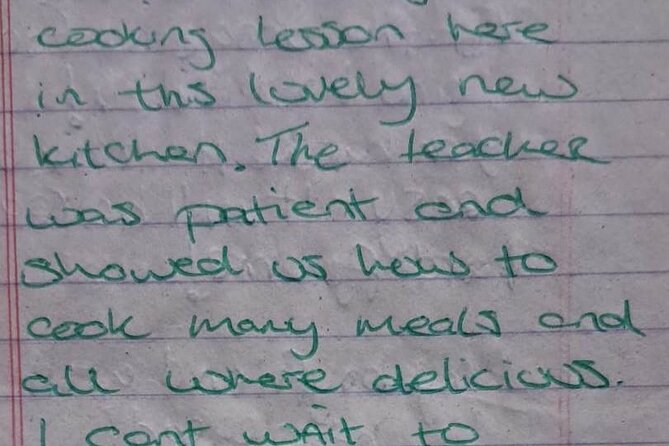 cooking lesson here
in ths lovely new
kitchen. The teacher
was patient and
showed us how to
cook many meals and
all where delicious.
I cant wait to